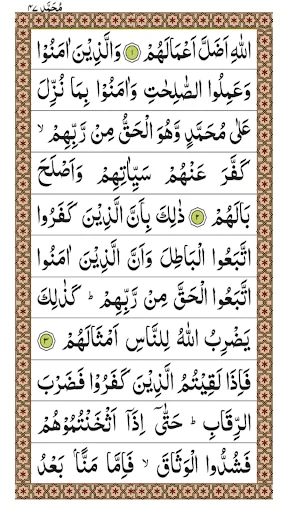 مُحَمَّد ٤٧
اللّٰهِ اَضَلَّ اَعْمَالَهُمْ ۝١ وَالَّذِيْنَ اٰمَنُوْا
وَعَمِلُوا الصّٰلِحٰتِ وَاٰمَنُوْا بِمَا نُزِّلَ
عَلٰى مُحَمَّدٍ وَّهُوَ الْحَقُّ مِنْ رَّبِّهِمْ ۙ
كَفَّرَ عَنْهُمْ سَيِّاٰتِهِمْ وَاَصْلَحَ
بَالَهُمْ ۝٢ ذٰلِكَ بِاَنَّ الَّذِيْنَ كَفَرُوا
اتَّبَعُوا الْبَاطِلَ وَاَنَّ الَّذِيْنَ اٰمَنُوا
اتَّبَعُوا الْحَقَّ مِنْ رَّبِّهِمْ ؕ كَذٰلِكَ
يَضْرِبُ اللّٰهُ لِلنَّاسِ اَمْثَالَهُمْ ۝٣
فَاِذَا لَقِيْتُمُ الَّذِيْنَ كَفَرُوْا فَضَرْبَ
الرِّقَابِ ؕ حَتّٰٓى اِذَآ اَثْخَنْتُمُوْهُمْ
فَشُدُّوا الْوَثَاقَ ۙ فَاِمَّا مَنًّۢا بَعْدُ